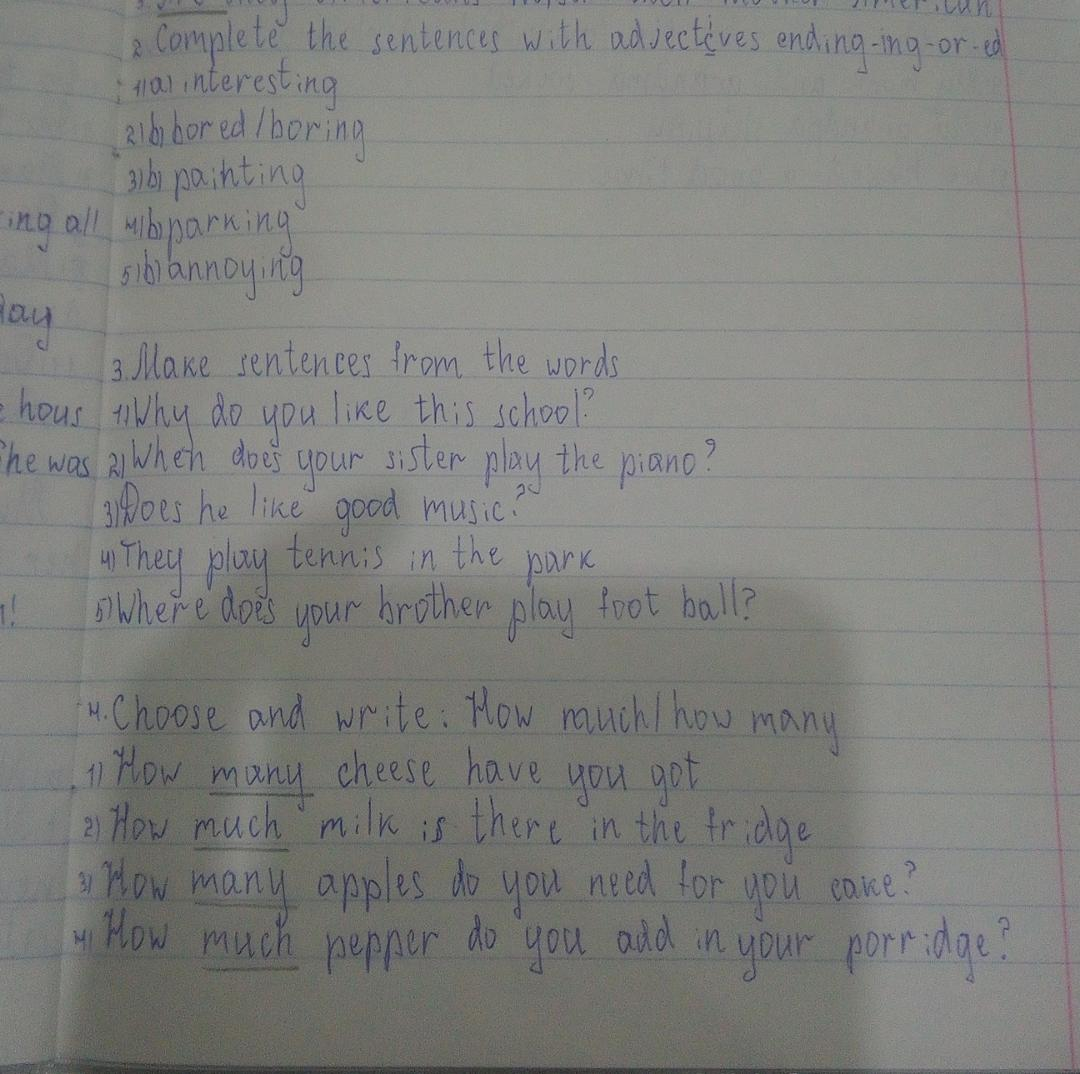 2. Complete the sentences with adjectives ending-ing-or-ed
1)a) interesting
2)b) bored/boring
3)b) painting
ing all
4)b) parking
5)b) annoying
lay
3. Make sentences from the words
hous
1) Why do you like this school?
he was
2) When does your sister play the piano?
3) Does he like good music?
4) They play tennis in the park
5) Where does your brother play foot ball?
4. Choose and write: How much/how many
1) How many cheese have you got
2) How much milk is there in the fridge
3) How many apples do you need for you cake?
4) How much pepper do you add in your porridge?